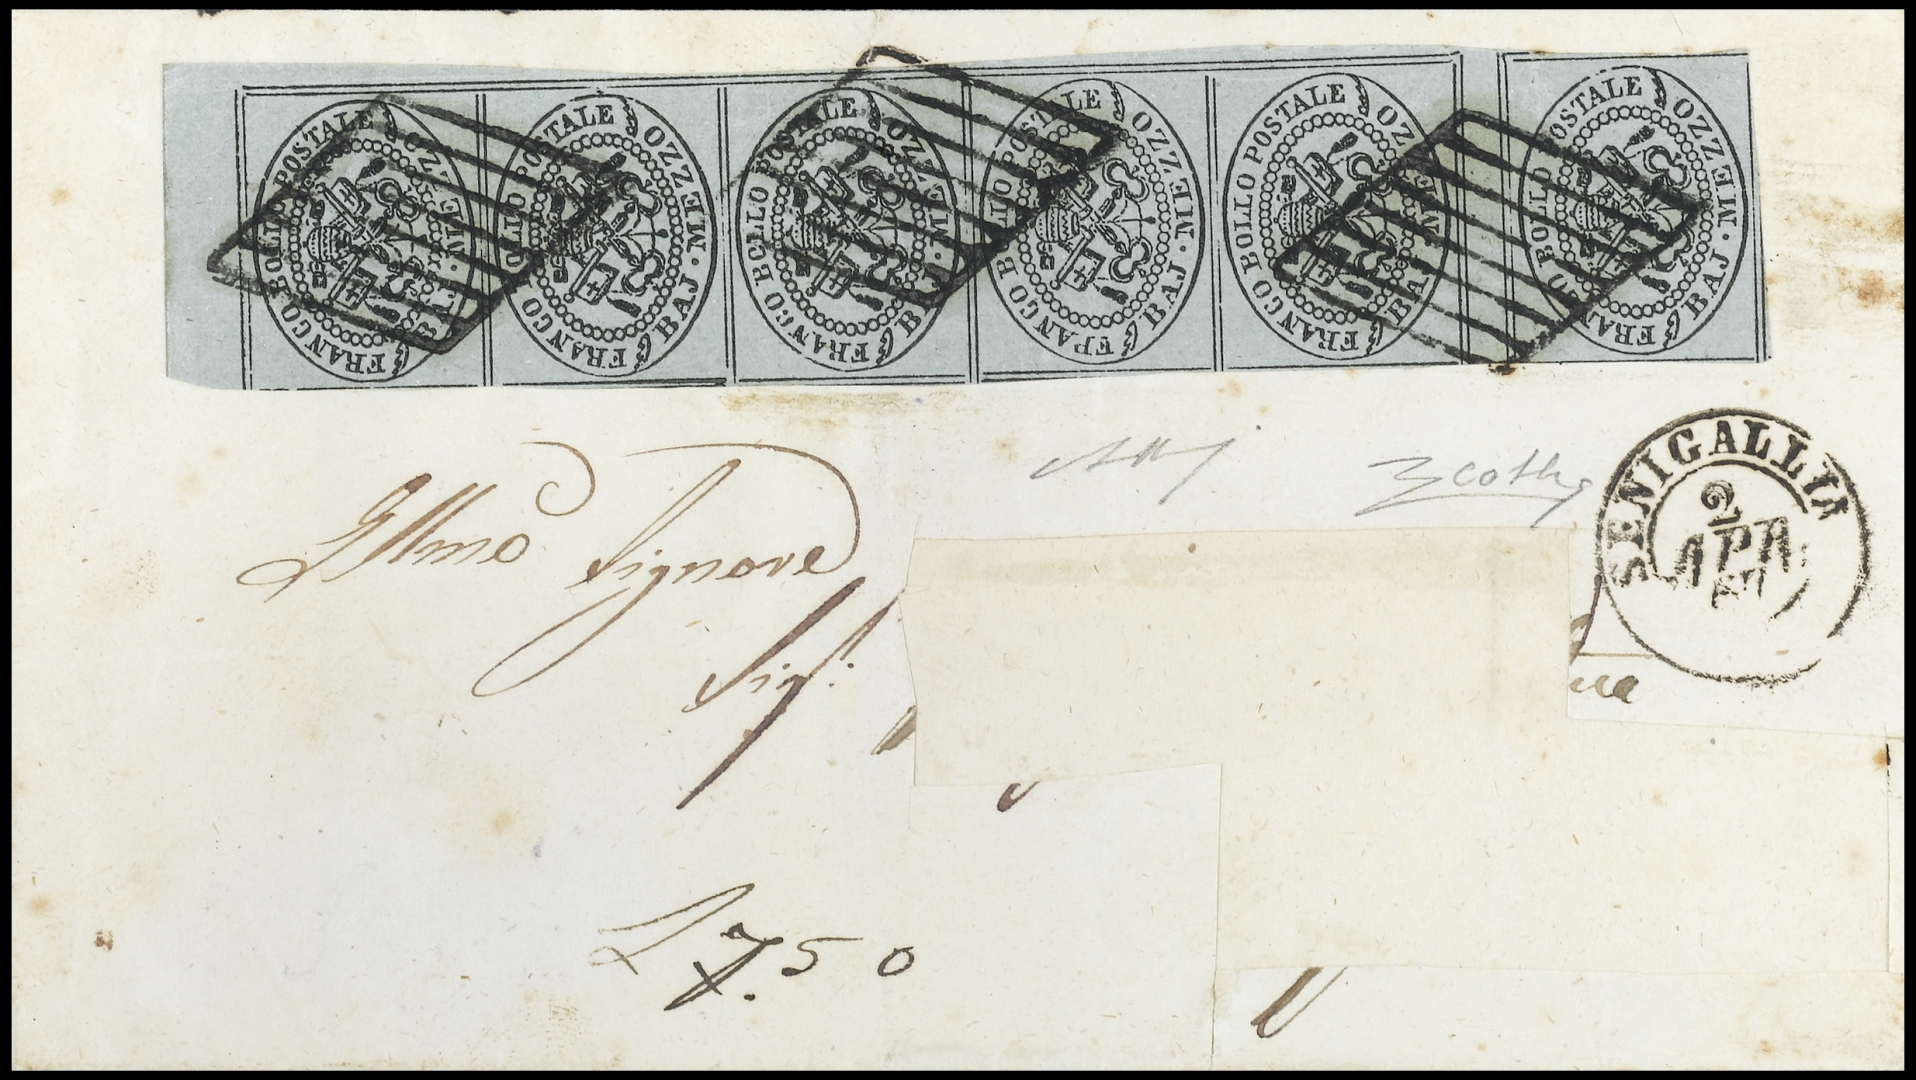 FRANCO BOLLO POSTALE MEZZO BAJ.
FRANCO BOLLO POSTALE MEZZO BAJ.
FRANCO BOLLO POSTALE MEZZO BAJ.
FRANCO BOLLO POSTALE MEZZO BAJ.
FRANCO BOLLO POSTALE MEZZO BAJ.
FRANCO BOLLO POSTALE MEZZO BAJ.
SENIGALLIA
2
APR
Illmo Signore
Sigr: